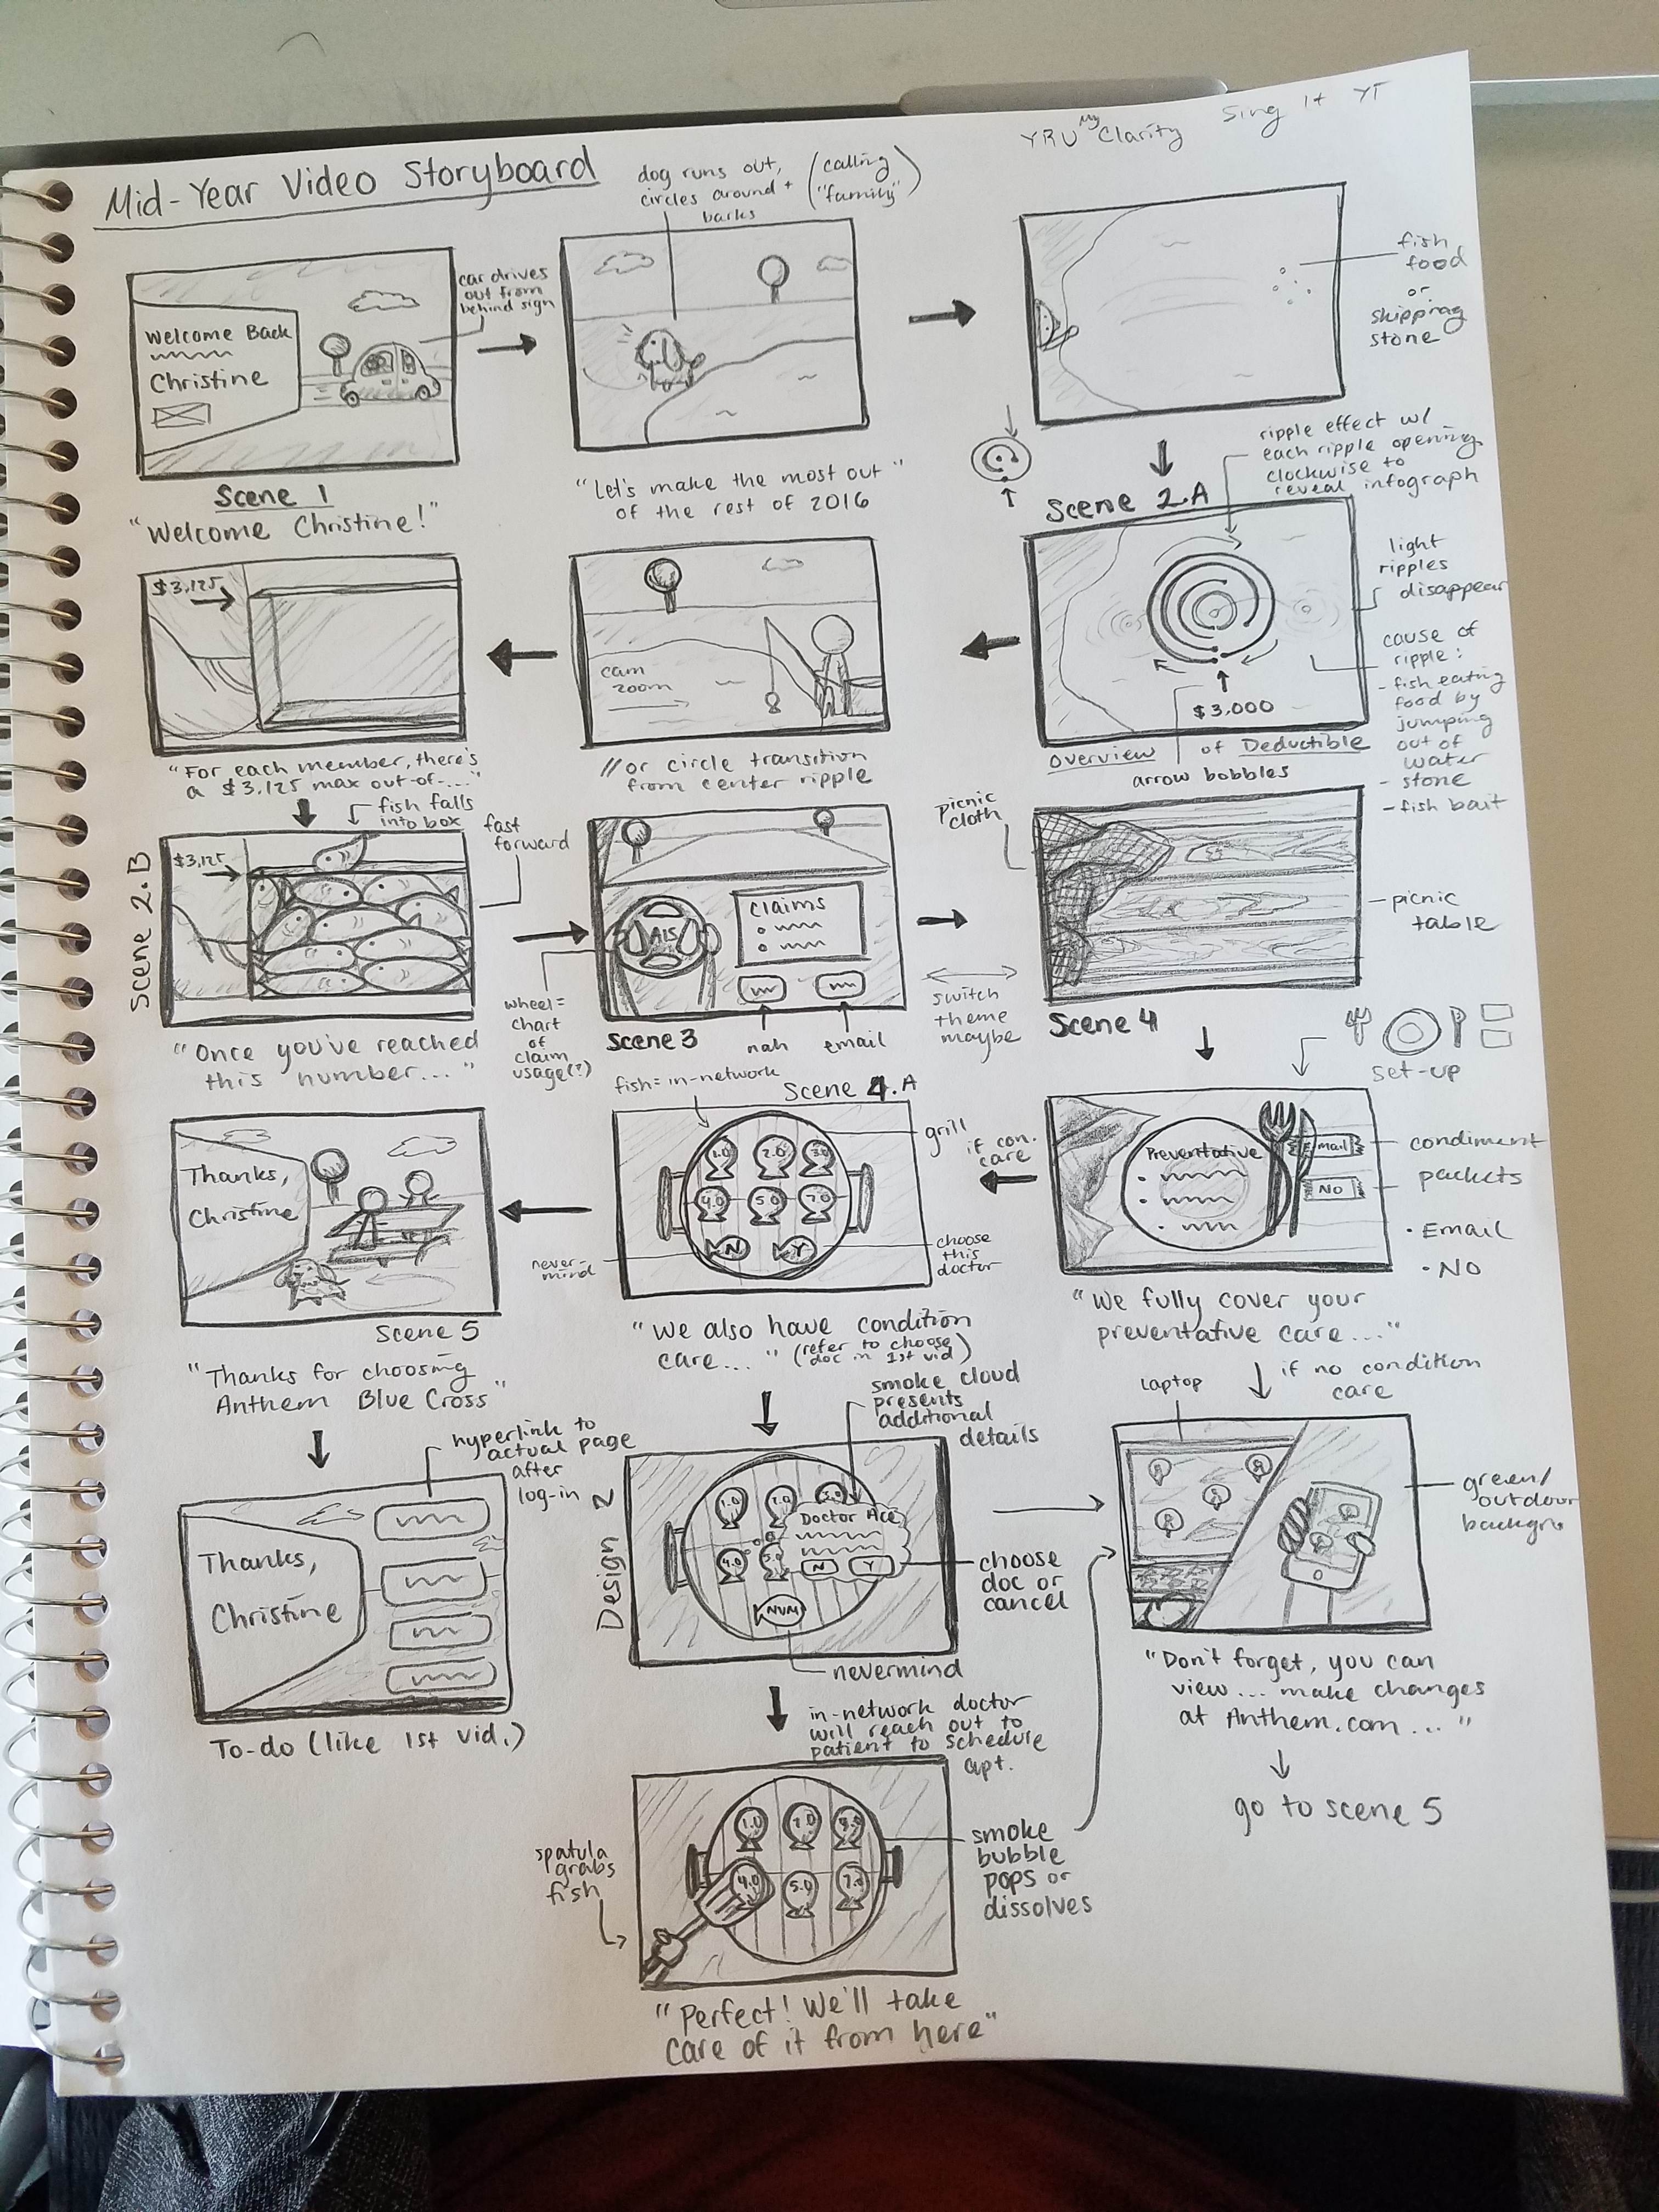 Mid-Year Video Storyboard
YRU My Clarity
Sing It YT
dog runs out,
circles around +
barks
(calling
"family")
Welcome Back
Christine
car drives
out from
behind sign
Scene 1
"Welcome Christine!"
"Let's make the most out"
of the rest of 2016
fish
food
or
skipping
stone
ripple effect w/
each ripple opening
clockwise to
reveal infograph
Scene 2.A
light
ripples
disappear
cause of
ripple:
- fish eating
food by
jumping
out of
water
- stone
- fish bait
$3,000
Overview of Deductible
arrow bobbles
cam
zoom
// or circle transition
from center ripple
$3,125
"For each member, there's
a $3,125 max out-of-..."
fish falls
into box
fast
forward
Scene 2.B
$3,125
"Once you've reached
this number..."
AIS
Claims
wheel=
chart
of
claim
usage(?)
Scene 3
nah
email
switch
theme
maybe
picnic
cloth
picnic
table
Scene 4
set-up
Preventative
Email
NO
condiment
packets
• Email
• NO
"We fully cover your
preventative care..."
if con.
care
fish=in-network
Scene 4.A
grill
1.0 2.0 3.0
4.0 5.0 7.0
N Y
never-
mind
choose
this
doctor
"We also have condition
care..." (refer to choose
doc in 1st vid)
Thanks,
Christine
Scene 5
"Thanks for choosing
Anthem Blue Cross"
hyperlink to
actual page
after
log-in
Thanks,
Christine
To-do (like 1st vid.)
smoke cloud
presents
additional
details
Design 2
1.0 2.0 3.0
Doctor Ace
4.0 5.0
N Y
NVM
choose
doc or
cancel
nevermind
in-network doctor
will reach out to
patient to schedule
apt.
spatula
grabs
fish
4.0 5.0 7.0
smoke
bubble
pops or
dissolves
"Perfect! We'll take
care of it from here"
if no condition
care
laptop
green/
outdoor
backgro
"Don't forget, you can
view... make changes
at Anthem.com..."
go to scene 5